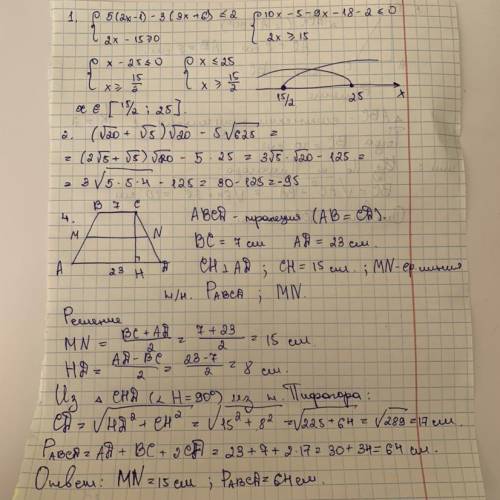 1. { 5(2x-1) - 3(3x+6) ≤ 2 { 10x - 5 - 9x - 18 - 2 ≤ 0
2x - 15 ≥ 0 2x ≥ 15
{ x - 25 ≤ 0 { x ≤ 25
x ≥ 15/2 x ≥ 15/2
15/2 25 x
x ∈ [15/2 ; 25].
2. (√20 + √5)√20 - 5√625 =
= (2√5 + √5)√20 - 5 · 25 = 3√5 · √20 - 125 =
= 3√5·5·4 - 125 = 30 - 125 = -95
4. B 7 C
M N
A 23 H D
ABCD - трапеция (AB = CD).
BC = 7 см AD = 23 см.
CH ⊥ AD ; CH = 15 см. ; MN - ср. линия
Н/н. PABCD ; MN.
Решение
MN = BC + AD / 2 = 7 + 23 / 2 = 15 см.
HD = AD - BC / 2 = 23 - 7 / 2 = 8 см.
Из △ CHD (∠ H = 90°) из т. Пифагора:
CD = √HD² + CH² = √15² + 8² = √225 + 64 = √289 = 17 см.
PABCD = AD + BC + 2CD = 23 + 7 + 2 · 17 = 30 + 34 = 64 см.
Ответ: MN = 15 см ; PABCD = 64 см.